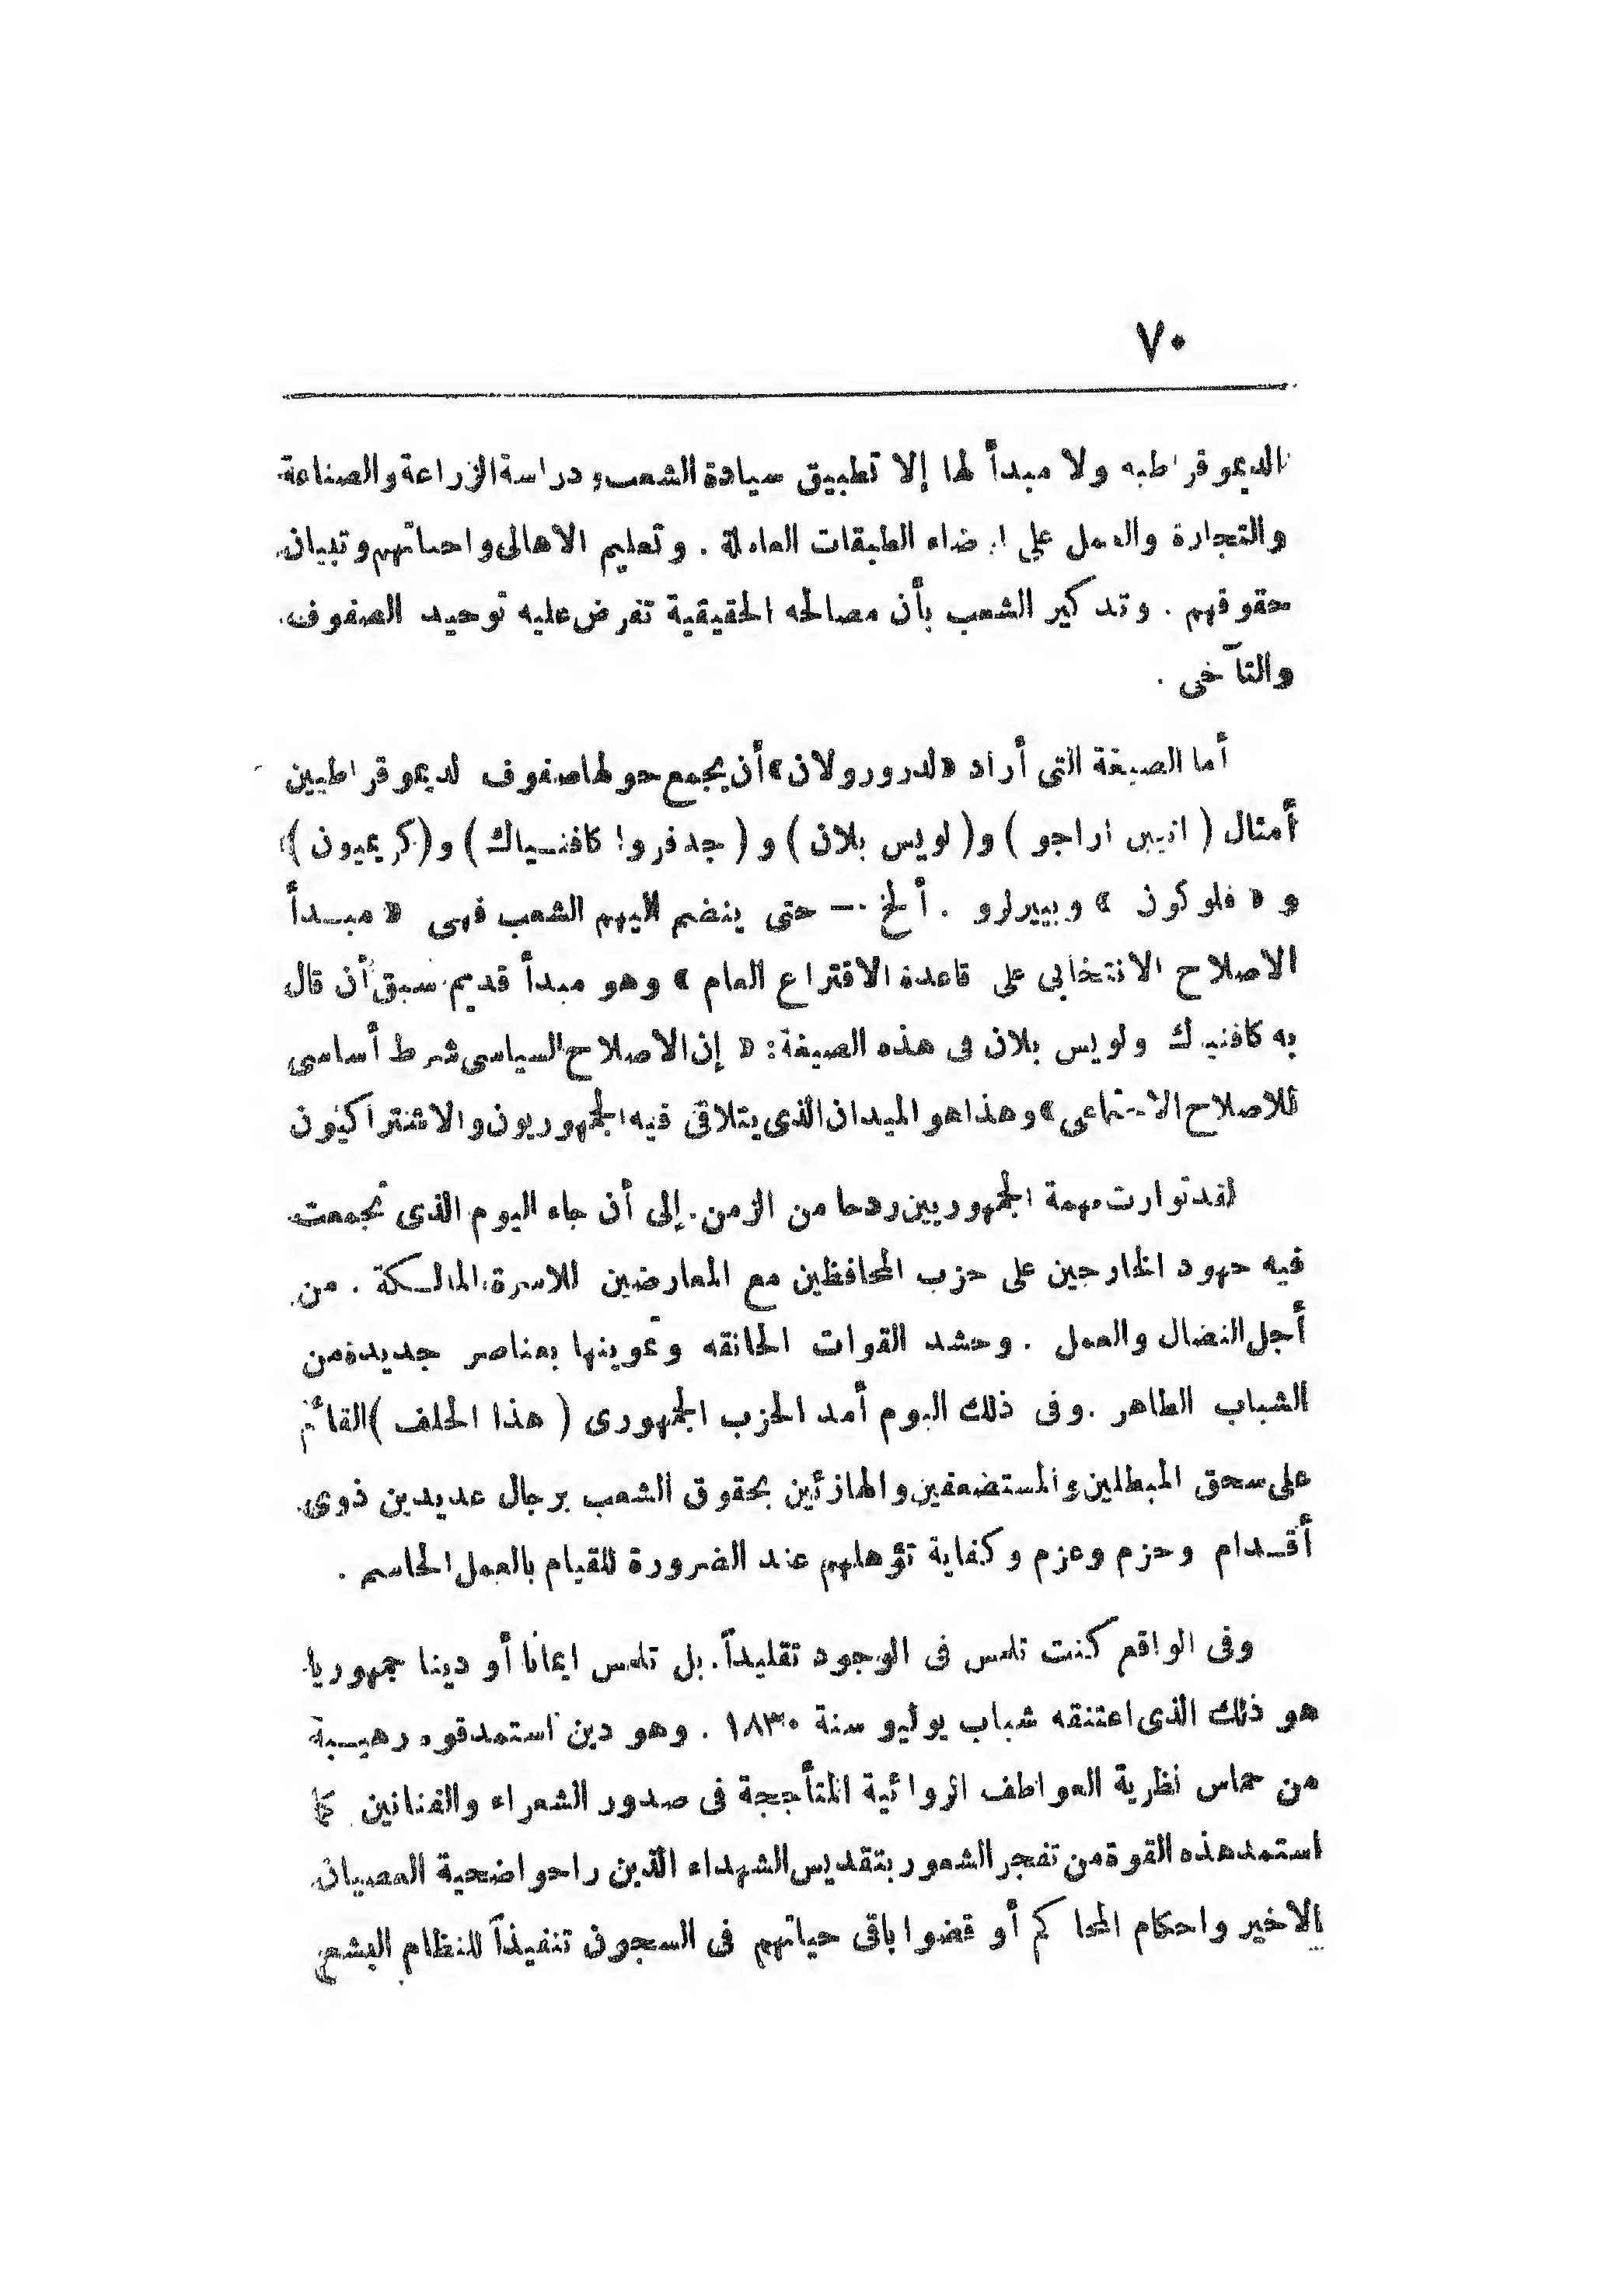 ٧٠
الديموقراطيه ولا مبدأ لها إلا تطبيق سيادة الشعب ودراسة الزراعة والصناعة
والتجارة والعمل على ارضاء الطبقات العاملة . وتعليم الاهالى واحصائهم وتبيان
حقوقهم . وتدكير الشعب بأن مصالحه الحقيقية تفرض عليه توحيد الصفوف
والتآخى .
أما الصيغة التى أراد «لدرورولان» أن يجمع حولها صفوف لديموقراطيين
أمثال ( اراجو ) و( لويس بلان ) و ( جدفروا كافنياك ) و( كريميون )
و « فلوكون » وبييرلرو . ألخ — حتى ينضم اليهم الشعب فهى « مبدأ
الاصلاح الانتخابى على قاعدة الاقتراع العام » وهو مبدأ قديم سبق أن قال
به كافنياك ولويس بلان فى هذه الصيغة : « إن الاصلاح السياسى شرط أساسى
للاصلاح الاجتماعى » وهذا هو الميدان الذى يتلاقى فيه الجمهوريون والاشتراكيون
لقد توارت مهمة الجمهوريين ردحا من الزمن . إلى أن جاء اليوم الذى تجمعت
فيه جهود الخارجين على حزب المحافظين مع المعارضين للاسرة المالكة . من
أجل النضال والعمل . وحشد القوات الحانقه وتموينها بعناصر جديدة من
الشباب الطاهر . وفى ذلك اليوم أمد الحزب الجمهورى ( هذا الحلف ) القائم
على سحق المبطلين والمستضعفين والهازئين بحقوق الشعب برجال عديدين ذوى
أقدام وحزم وعزم وكفاية تؤهلهم عند الضرورة للقيام بالعمل الحاسم .
وفى الواقع كنت تلمس فى الوجود تقليداً . بل تلمس ايمانا أو دينا جمهوريا
هو ذلك الذى اعتنقه شباب يوليو سنة ١٨٣٠ . وهو دين استمد قوه رهيبة
من حماس نظرية العواطف الروائية المتأججة فى صدور الشعراء والفنانين كما
استمد هذه القوة من تفجر الشعور بتقديس الشهداء الذين راحوا ضحية العصيان
الاخير واحكام المحاكم أو قضوا باقى حياتهم فى السجون تنفيذاً للنظام البشع